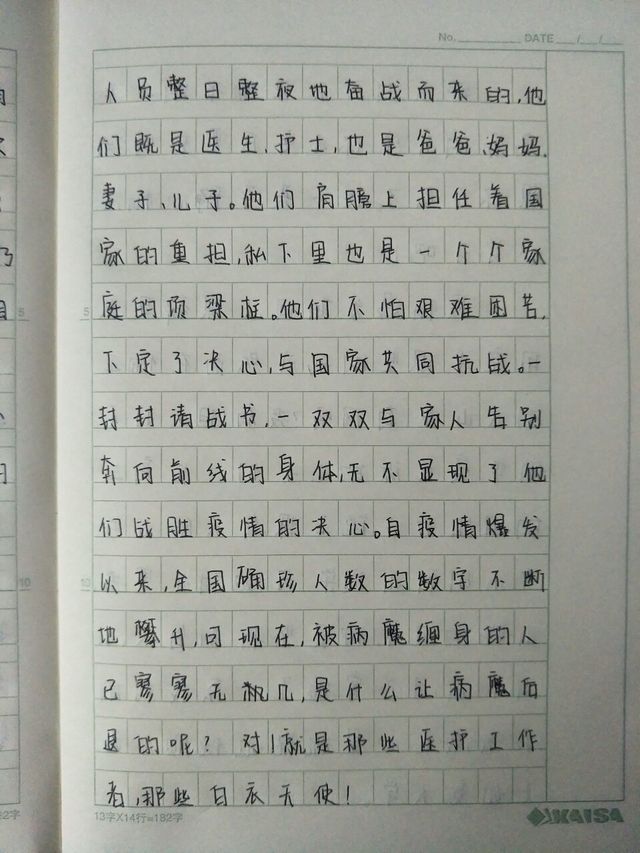 No. DATE / /
人员整日整夜地奋战而来的,他
们既是医生、护士,也是爸爸、妈妈、
妻子、儿子。他们肩膀上担任着国
家的重担,私下里也是一个个家
庭的顶梁柱。他们不怕艰难困苦,
下定了决心,与国家共同抗战。一
封封请战书,一双双与家人告别
奔向前线的身体,无不显现了他
们战胜疫情的决心。自疫情爆发
以来,全国确珍人数的数字不断
地攀升,可现在,被病魔缠身的人
已寥寥无机几,是什么让病魔后
退的呢?对!就是那些医护工作
者,那些白衣天使!
5
5
10
10
13字X14行=182字
KAISA